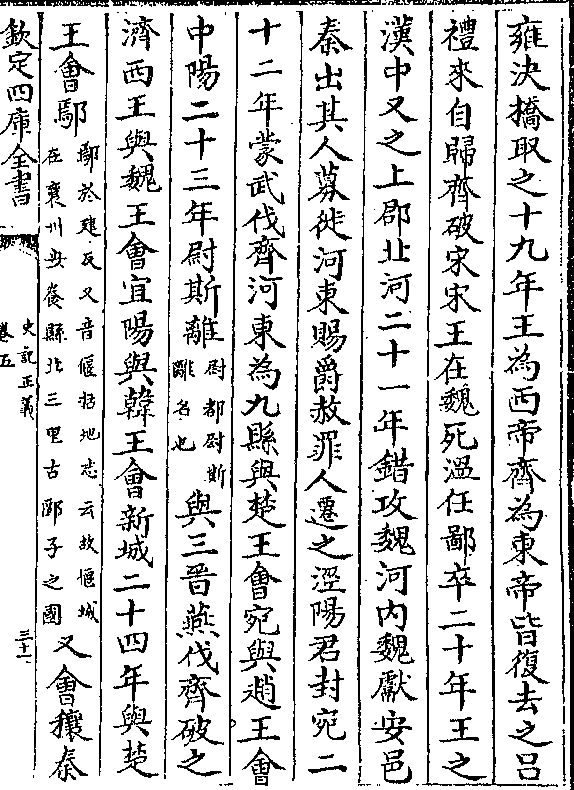 雍決橋取之十九年王為西帝齊為東帝皆復去之呂
禮來自歸齊破宋宋王在魏死溫任鄙卒二十年王之
漢中又之上郡北河二十一年錯攻魏河內魏獻安邑
秦出其人募徙河東賜爵赦罪人遷之涇陽君封宛二
十二年蒙武伐齊河東為九縣與楚王會宛與趙王會
中陽二十三年尉斯離尉都尉斯離名也與三晉燕伐齊破之
濟西王與魏王會宜陽與韓王會新城二十四年與楚
王會鄢鄢於建反又音偃括地志云故偃城在襄州安養縣北三里古郾子之國又會穰秦
欽定四庫全書
史記正義
卷五
三十一